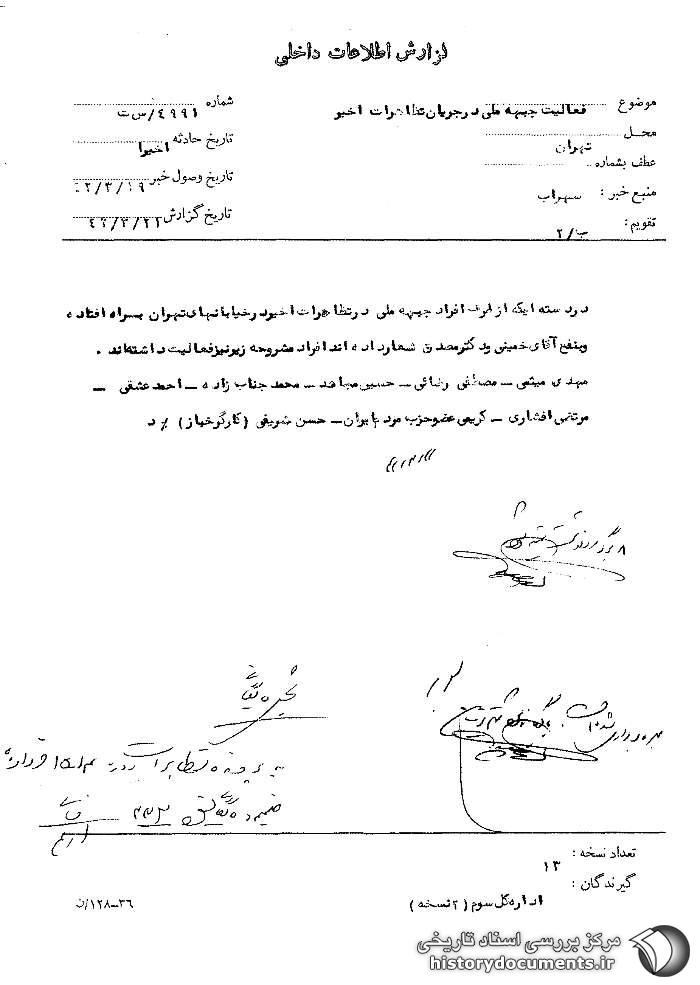 گزارش اطلاعات داخلی
موضوع فعالیت جبهه ملی در جریان تظاهرات اخیر
محل تهران
عطف بشماره
منبع خبر : سهراب
تقویم : ب/۲
شماره ۴۹۹۱/س ت
تاریخ حادثه اخیرا
تاریخ وصول خبر ۴۲/۳/۱۹
تاریخ گزارش ۴۲/۳/۲۲
در دسته ایکه از طرف افراد جبهه ملی در تظاهرات اخیر در خیابانهای تهران براه افتاده
و بنفع آقای خمینی و دکتر مصدق شعار داده اند افراد مشروحه زیر نیز فعالیت داشته‌اند .
مهدی میثمی – مصطفی رضائی – حسین مجاهد – محمد جناب زاده – احمد عشقی –
مرتضی افشاری – کریمی عضو حزب مردم ایران – حسن شریفی (کارگر خباز) %د
بهره برداری شد
به پرونده تظاهرات روز
ضمیمه
تعداد نسخه :
۱۳
گیرندگان :
اداره کل سوم (۲ نسخه)
۳۶–۱۲۸/ن
مرکز بررسی اسناد تاریخی
historydocuments.ir